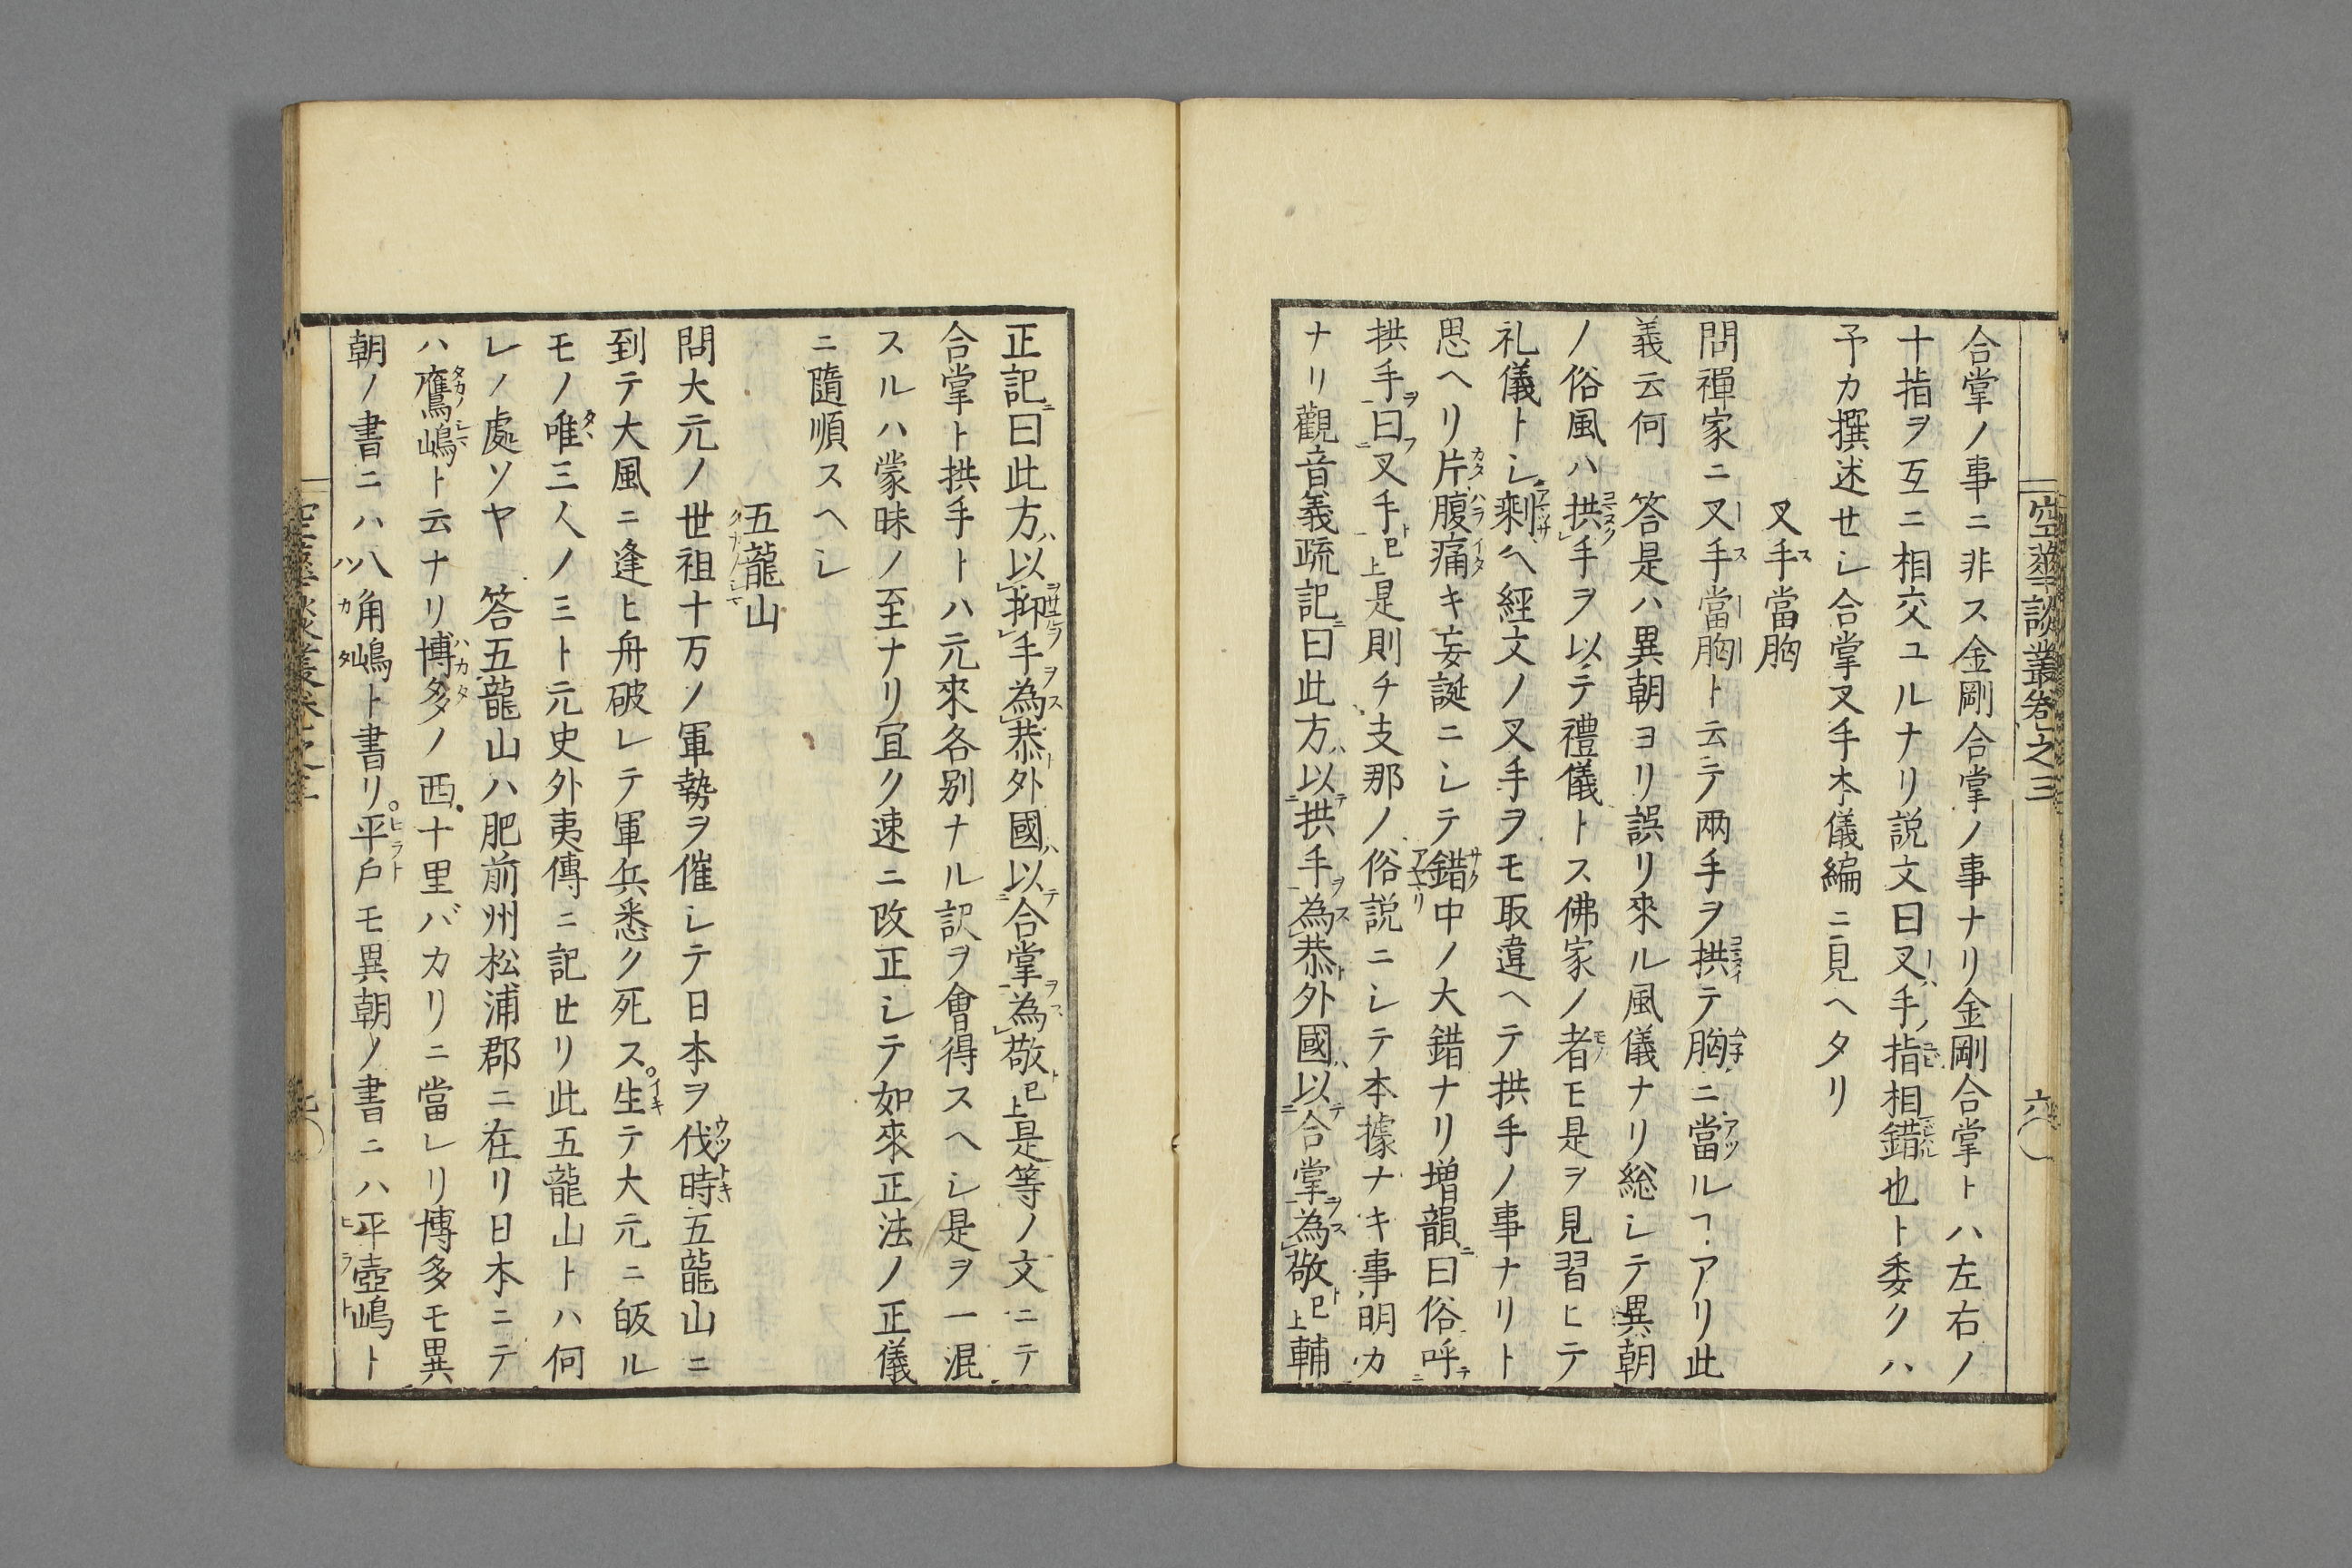 空華談叢卷之三
六
合掌ノ事ニ非ス金剛合掌ノ事ナリ金剛合掌トハ左右ノ
十指ヲ互ニ相交ユルナリ説文曰叉手指相錯也ト委クハ
予カ撰述せシ合掌叉手本儀編ニ見ヘタリ
叉手當胸
問禪家ニ叉手當胸ト云テ兩手ヲ拱テ胸ニ當ルヿアリ此
義云何　答是ハ異朝ヨリ誤リ來ル風儀ナリ総シテ異朝
ノ俗風ハ拱手ヲ以テ禮儀トス佛家ノ者モ是ヲ見習ヒテ
礼儀トシ剰ヘ經文ノ叉手ヲモ取違ヘテ拱手ノ事ナリト
思ヘリ片腹痛キ妄誕ニシテ錯中ノ大錯ナリ増韻曰俗呼
拱手曰叉手已上是則チ支那ノ俗説ニシテ本據ナキ事明カ
ナリ觀音義疏記曰此方以拱手為恭外國以合掌為敬已上輔
正記曰此方以抑手為恭外國以合掌為敬已上是等ノ文ニテ
合掌ト拱手トハ元來各別ナル訳ヲ會得スヘシ是ヲ一混
スルハ蒙昧ノ至ナリ宜ク速ニ改正シテ如來正法ノ正儀
ニ隨順スヘシ
五龍山
問大元ノ世祖十万ノ軍勢ヲ催シテ日本ヲ伐時五龍山ニ
到テ大風ニ逢ヒ舟破レテ軍兵悉ク死ス。生テ大元ニ皈ル
モノ唯三人ノミト元史外夷傳ニ記せリ此五龍山トハ何
レノ處ソヤ　答五龍山ハ肥前州松浦郡ニ在リ日本ニテ
ハ鷹嶋ト云ナリ博多ノ西十里バカリニ當レリ博多モ異
朝ノ書ニハ八角嶋ト書リ。平戶モ異朝ノ書ニハ平壺嶋ト